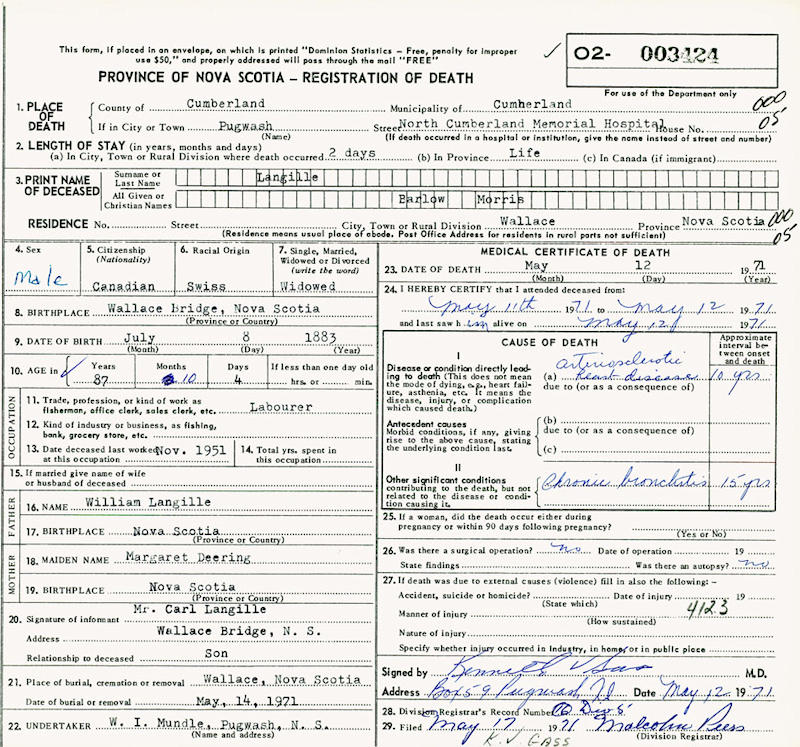 This form, if placed in an envelope, on which is printed "Dominion Statistics - Free, penalty for improper
use $50," and properly addressed will pass through the mail "FREE"
✓ O2- 003424
PROVINCE OF NOVA SCOTIA - REGISTRATION OF DEATH
For use of the Department only
1. PLACE OF DEATH
County of Cumberland Municipality of Cumberland 000
If in City or Town Pugwash Street North Cumberland Memorial Hospital House No. 05
(Name) (If death occurred in a hospital or institution, give the name instead of street and number)
2. LENGTH OF STAY (in years, months and days)
(a) In City, Town or Rural Division where death occurred 2 days (b) In Province Life (c) In Canada (if immigrant)
3. PRINT NAME OF DECEASED
Surname or Last Name Langille
All Given or Christian Names Barlow Morris
RESIDENCE No. Street City, Town or Rural Division Wallace Province Nova Scotia 000
(Residence means usual place of abode. Post Office Address for residents in rural parts not sufficient) 05
4. Sex Male
5. Citizenship (Nationality) Canadian
6. Racial Origin Swiss
7. Single, Married, Widowed or Divorced (write the word) Widowed
8. BIRTHPLACE Wallace Bridge, Nova Scotia
(Province or Country)
9. DATE OF BIRTH July 8 1883
(Month) (Day) (Year)
10. AGE in ✓ Years 87 Months 10 Days 4 If less than one day old hrs. or min.
OCCUPATION
11. Trade, profession or kind of work as fisherman, office clerk, sales clerk, etc. Labourer
12. Kind of industry or business, as fishing, bank, grocery store, etc.
13. Date deceased last worked at this occupation Nov. 1951
14. Total yrs. spent in this occupation
15. If married give name of wife or husband of deceased
FATHER
16. NAME William Langille
17. BIRTHPLACE Nova Scotia
(Province or Country)
MOTHER
18. MAIDEN NAME Margaret Deering
19. BIRTHPLACE Nova Scotia
(Province or Country)
20. Signature of informant Mr. Carl Langille
Address Wallace Bridge, N. S.
Relationship to deceased Son
21. Place of burial, cremation or removal Wallace, Nova Scotia
Date of burial or removal May, 14, 1971
22. UNDERTAKER W. I. Mundle, Pugwash, N. S.
(Name and address)
MEDICAL CERTIFICATE OF DEATH
23. DATE OF DEATH May 12 1971
(Month) (Day) (Year)
24. I HEREBY CERTIFY that I attended deceased from:
May 11th 1971 to May 12 1971
and last saw him alive on May 12 1971
CAUSE OF DEATH
Approximate interval between onset and death
I
Disease or condition directly leading to death (This does not mean the mode of dying, e.g., heart failure, asthenia, etc. It means the disease, injury, or complication which caused death.)
(a) arteriosclerotic heart disease 10 yrs
due to (or as a consequence of)
Antecedent causes
Morbid conditions, if any, giving rise to the above cause, stating the underlying condition last.
(b)
due to (or as a consequence of)
(c)
II
Other significant conditions contributing to the death, but not related to the disease or condition causing it.
Chronic bronchitis 15 yrs
25. If a woman, did the death occur either during pregnancy or within 90 days following pregnancy?
(Yes or No)
26. Was there a surgical operation? no Date of operation 19
State findings Was there an autopsy? no
27. If death was due to external causes (violence) fill in also the following: -
Accident, suicide or homicide? Date of injury 19
(State which) 4123
Manner of injury
(How sustained)
Nature of injury
Specify whether injury occurred in industry, in home, or in public place
Signed by Kenneth V Gass M.D.
Address Box 59 Pugwash Date May 12 1971
28. Division Registrar's Record Number
29. Filed May 17 1971 Malcolm
(Division Registrar)
K. V GASS